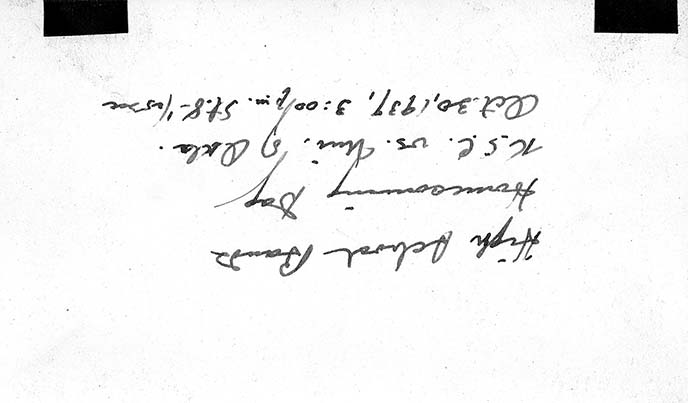 High School Bands
Homecoming Day
K.S.C. vs. Uni. of Okla.
Oct. 30, 1937, 3:00 p.m. St. 8 - 1/25 sec